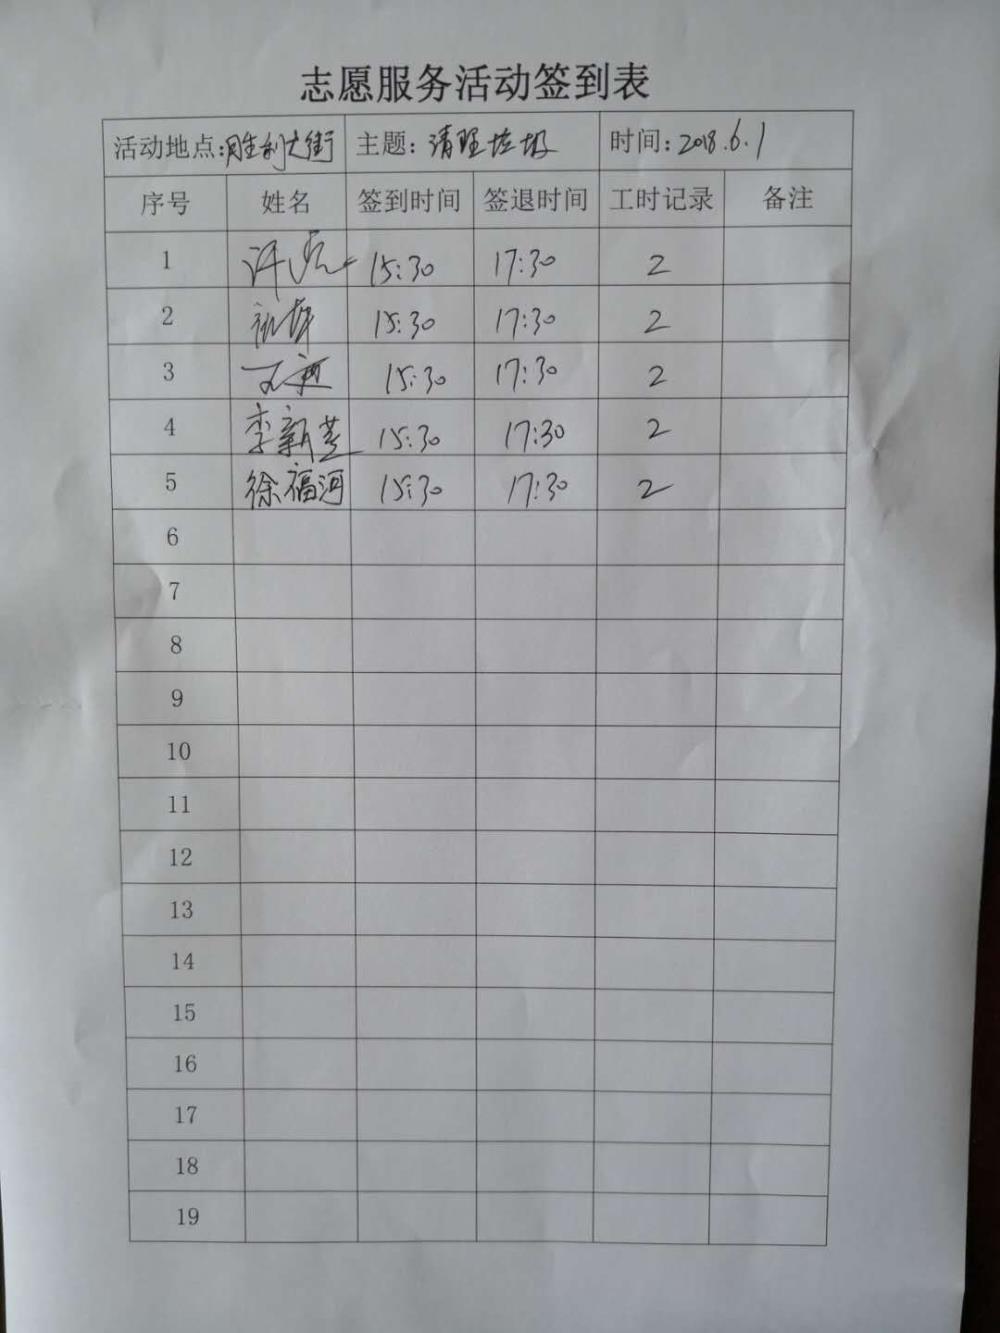 志愿服务活动签到表
活动地点:胜利大街 主题:清理垃圾 时间:2018.6.1
序号 姓名 签到时间 签退时间 工时记录 备注
1 15:30 17:30 2
2 15:30 17:30 2
3 15:30 17:30 2
4 李新芝 15:30 17:30 2
5 徐福河 15:30 17:30 2
6
7
8
9
10
11
12
13
14
15
16
17
18
19